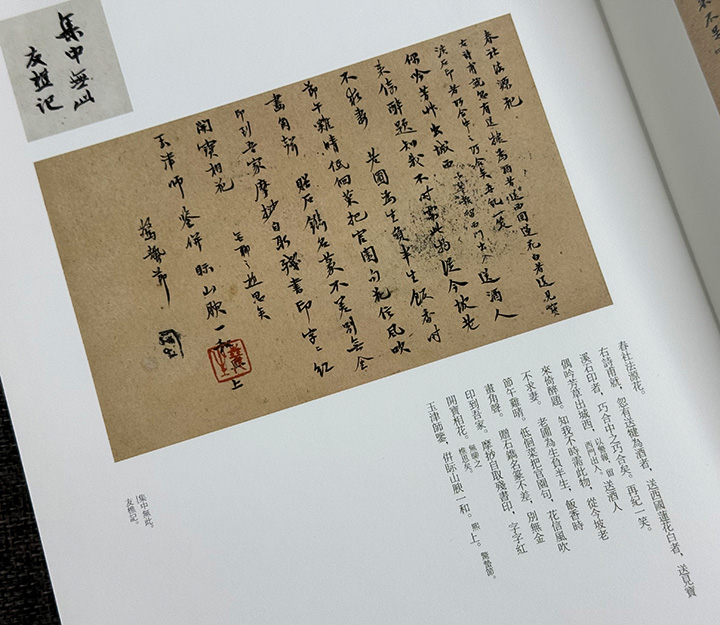 集中無此
友樵記
春社法源花
右詩甫就忽有送犍為酒者送西園蓮花白者送見寶
溪石印者巧合中之巧合矣再紀一笑
偶吟芳艸出城西 送酒人
來倚醉題知我不時需此物從今坡老
不求妻 老圃為生負半生飯香時
節午雞晴低徊菜把官園句花信風吹
畫角聲 贈石鐫名篆不差別無金
印到吾家摩挲自取殘書印字字紅
開寶相花 無聊之極思矣
玉津師鑒併眎山腴一和 上
驚蟄節
春社法源花。
右詩甫就，忽有送犍為酒者，送西國蓮花白者，送見寶
溪石印者，巧合中之巧合矣。再紀一笑。
偶吟芳草出城西，西門出入。送酒人
來倚醉題。知我不時需此物，從今坡老
不求妻。 老圃為生負半生，飯香時
節午雞晴。低徊菜把官園句，花信風吹
畫角聲。 贈石鐫名篆不差，別無金
印到吾家。摩挲自取殘書印，字字紅
開寶相花。無聊之極思矣。
玉津師鑒，併眎山腴一和。熊上。驚蟄節。
集中無此。
友樵記。